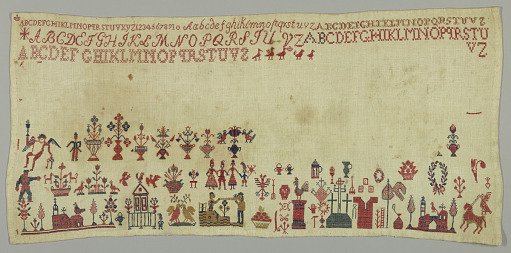 ABCDEFGHIKLMNOPQRSTUVXYZ1234567890 Aabcdefghiklmnopqrstuvz ABCDEFGHIKLMNOPQRSTUVS
ABCDEFGHIKLMNOPQRSTUVZ ABCDEFGHIKLMNOPQRSTU
VZ
ABCDEFGHIKLMNOPQRSTUVS